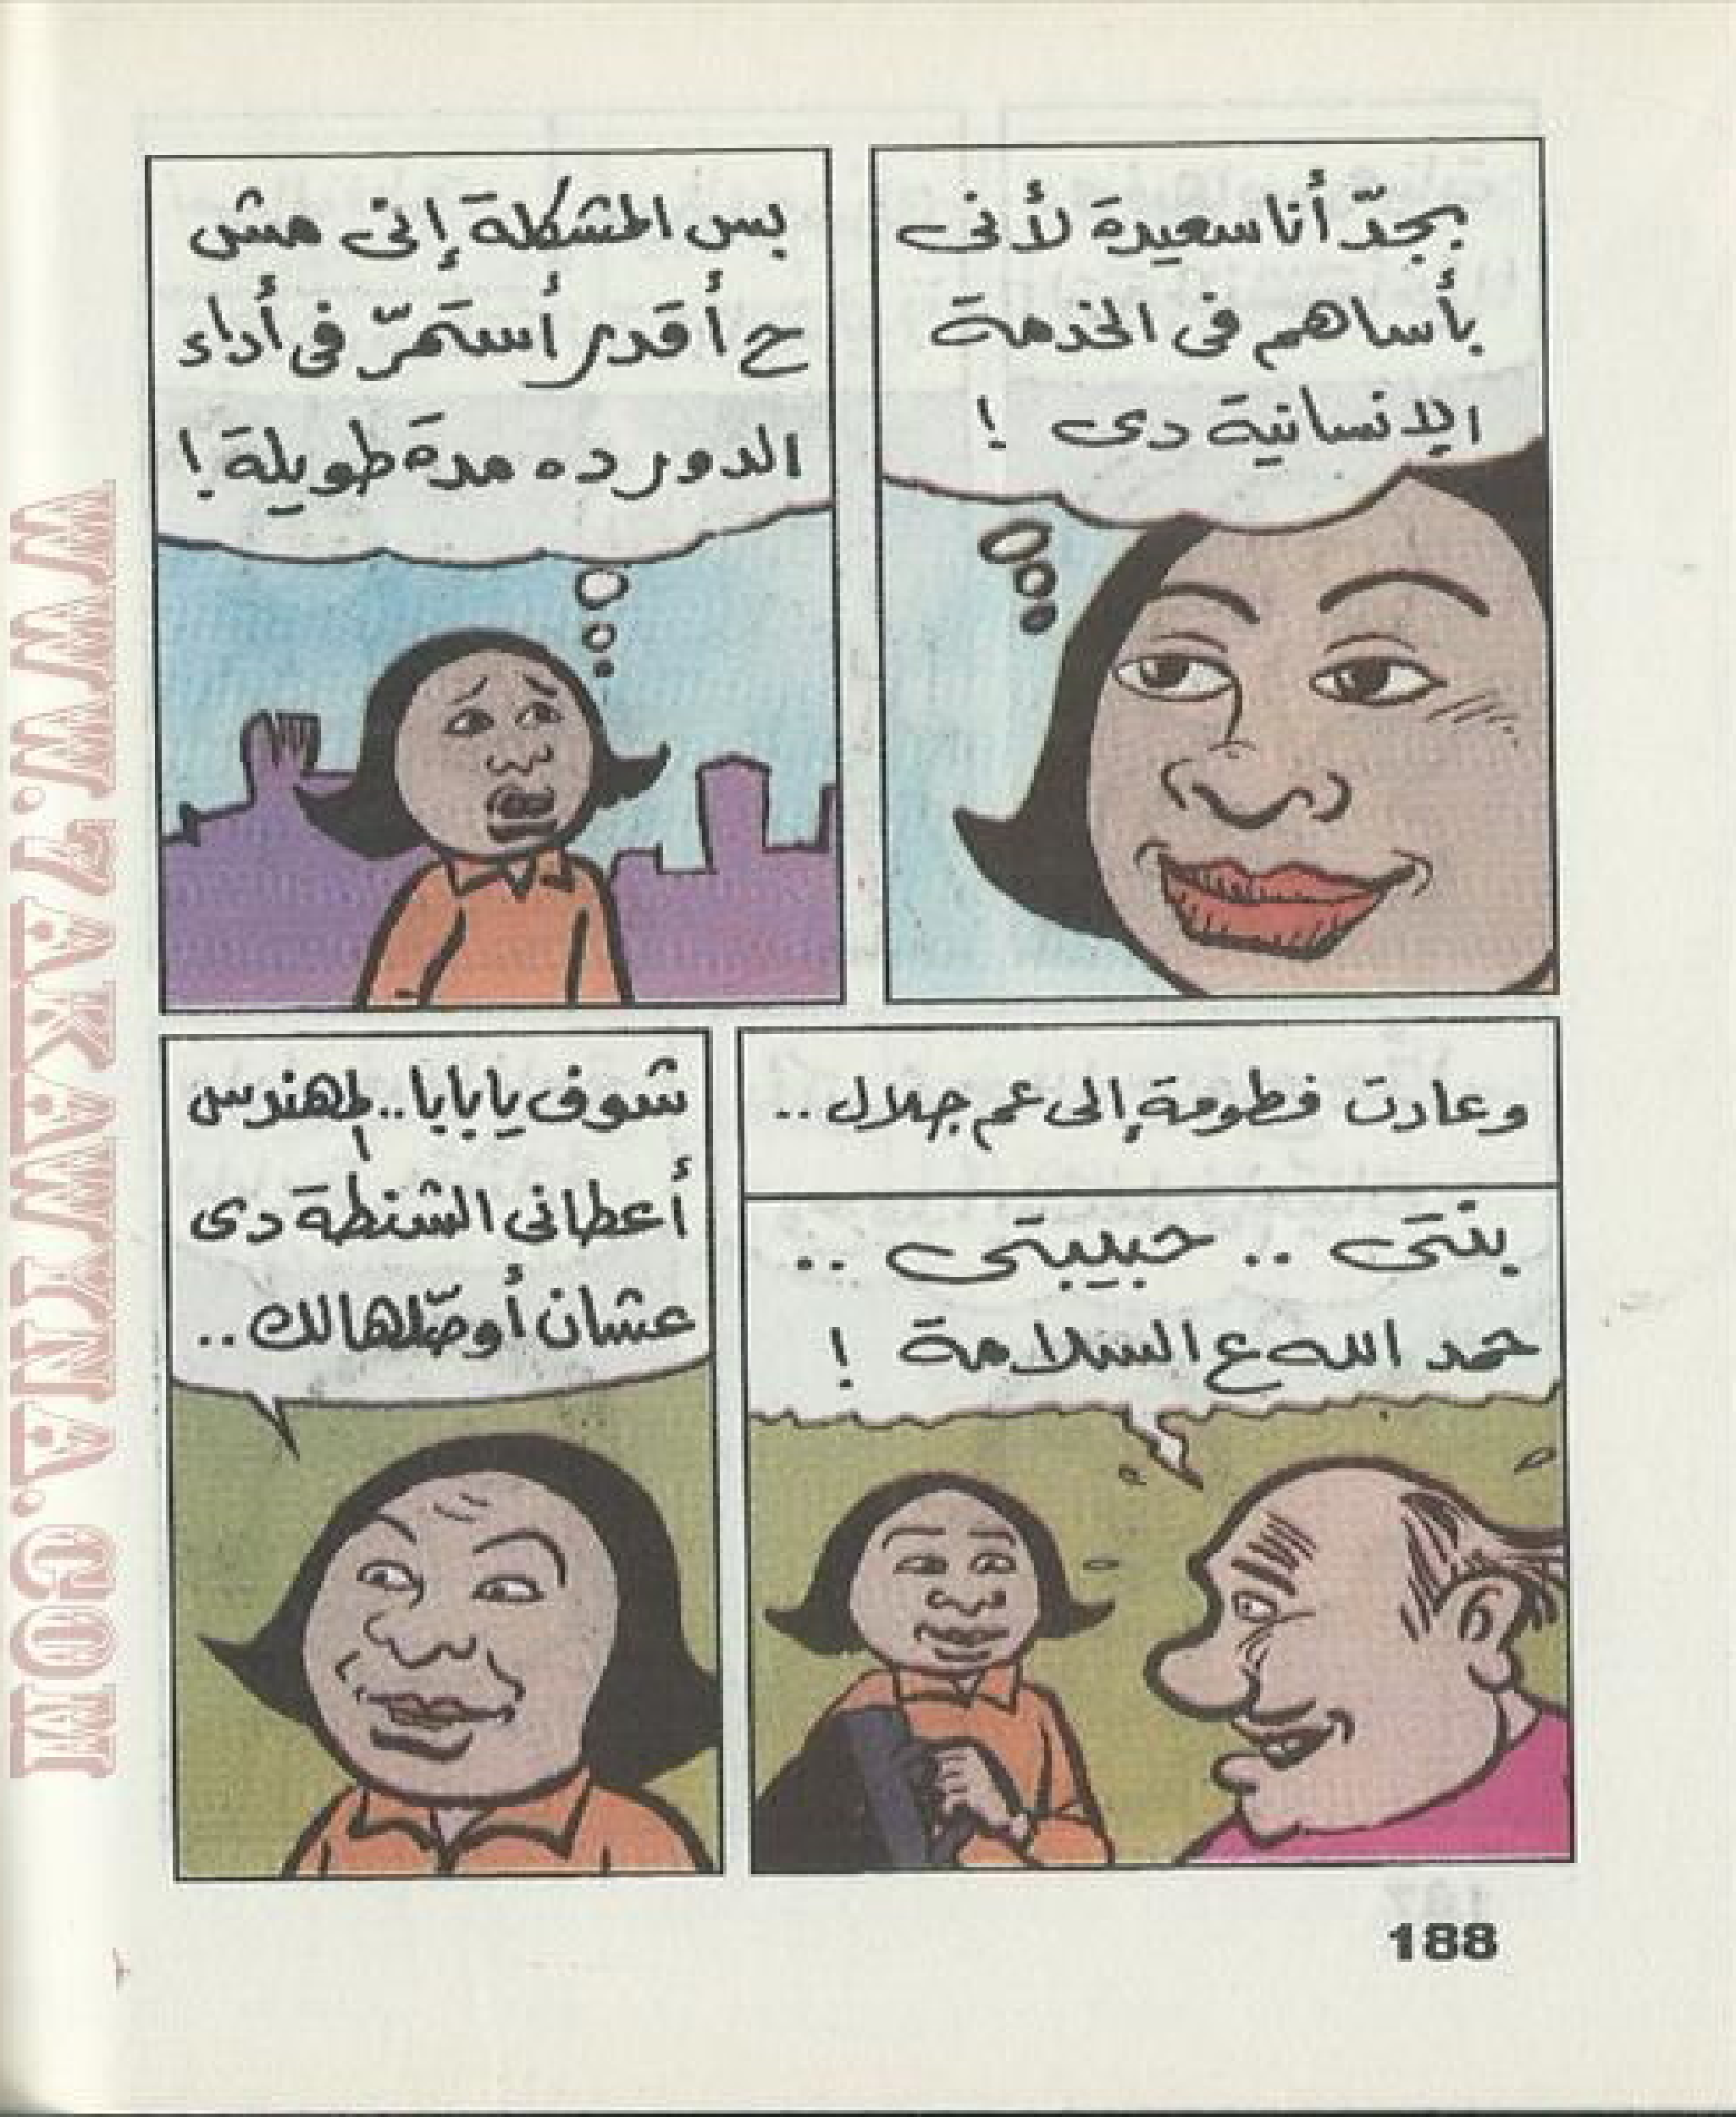 بجدّ أنا سعيدة لأنى
بأساهم فى الخدمة
الإنسانية دى !
بس المشكلة إنى مش
ح أقدر أستمرّ فى أداء
الدور ده مدة طويلة !
وعادت فطومة إلى عم جلال ..
بنتى .. حبيبتى ..
حمد الله ع السلامة !
شوف يا بابا .. المهندس
أعطانى الشنطة دى
عشان أوصّلها لك ..
188
WWW.7AKAWITNA.COM